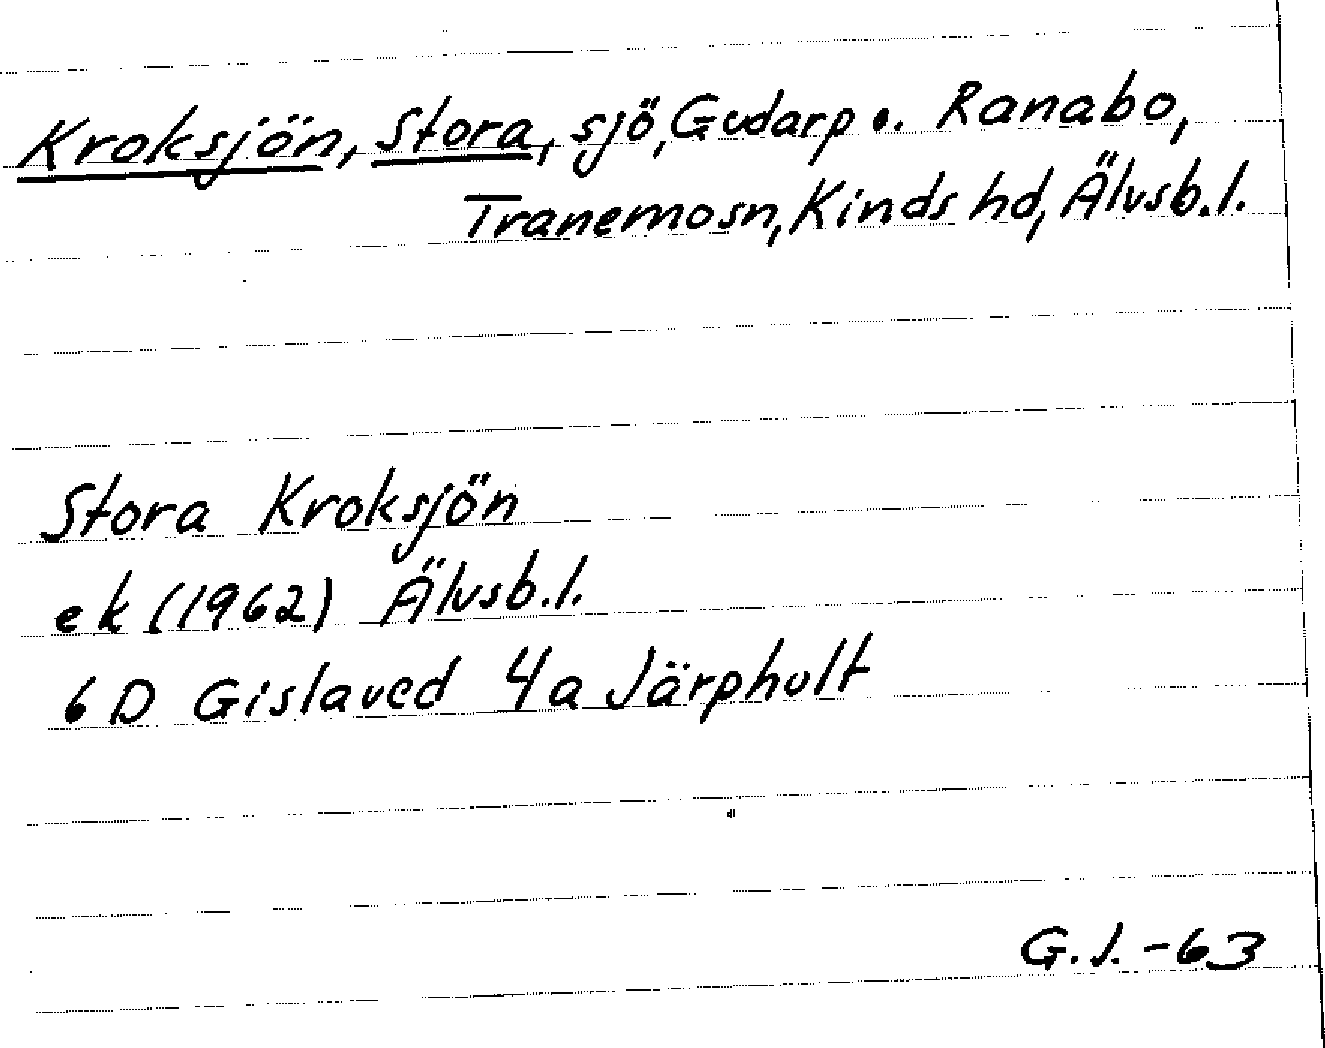 Kroksjön, Stora, sjö, Gudarp o. Ranabo,
Tranemo sn, Kinds hd, Älvsb. l.
Stora Kroksjön
ek (1962) Älvsb. l.
6 D Gislaved 4a Järphult
G.J. -63